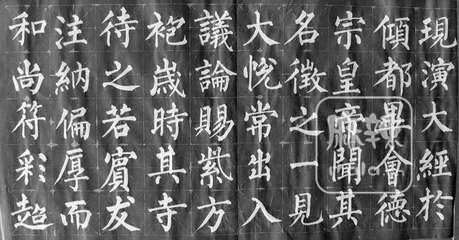 現演大經於
傾都畢會德
宗皇帝聞其
名徵之一見
大悅常出入
議論賜紫方
袍歲時其寺
待之若賓友
注納偏厚而
和尚符彩超